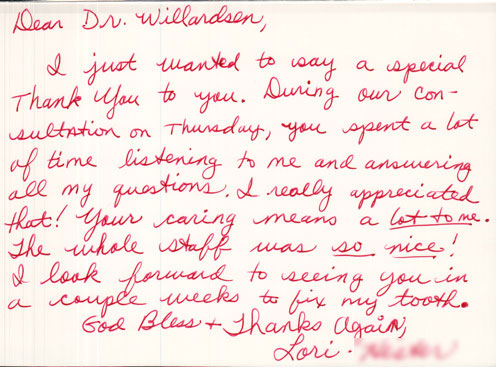 Dear Dr. Willardsen,
I just wanted to say a special
Thank You to you. During our con-
sultation on Thursday, you spent a lot
of time listening to me and answering
all my questions. I really appreciated
that! Your caring means a lot to me.
The whole staff was so nice!
I look forward to seeing you in
a couple weeks to fix my tooth.
God Bless + Thanks Again,
Lori